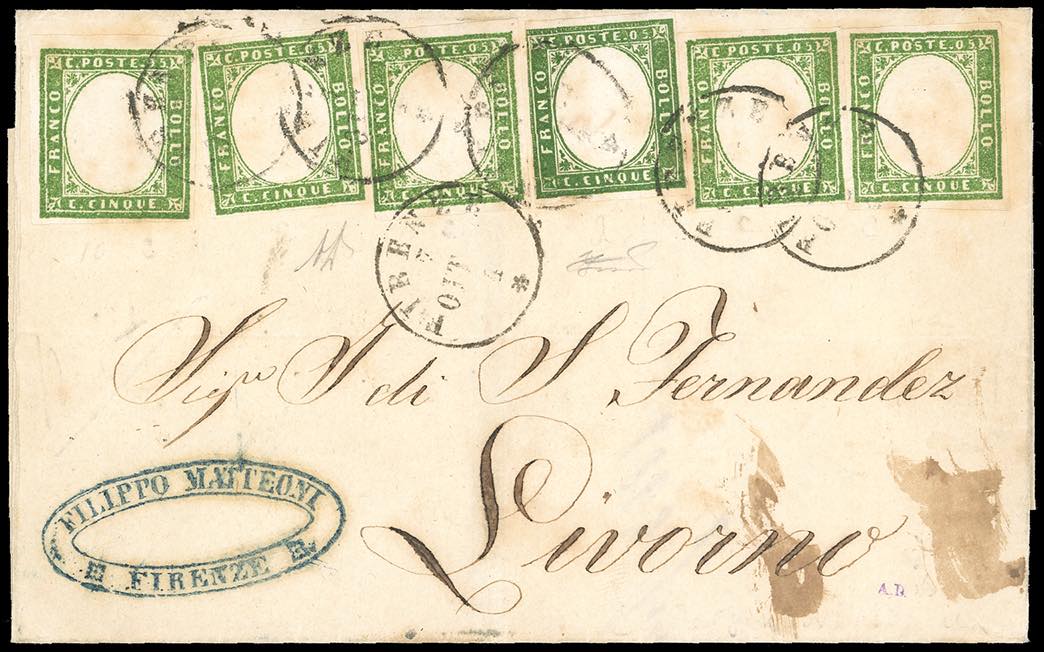 C. POSTE. 05. FRANCO BOLLO C. CINQUE
C. POSTE. 05. FRANCO BOLLO C. CINQUE
C. POSTE. 05. FRANCO BOLLO C. CINQUE
C. POSTE. 05. FRANCO BOLLO C. CINQUE
C. POSTE. 05. FRANCO BOLLO C. CINQUE
C. POSTE. 05. BOLLO C. CINQUE
Sigri I di S Fernandez
Livorno
FILIPPO MATTEONI
FIRENZE
A.D.